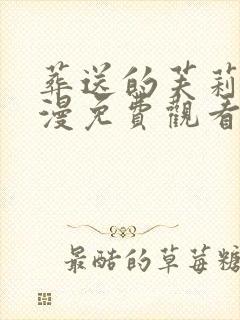 葬送的芙莉
漫免費觀看
最酷的草莓糖